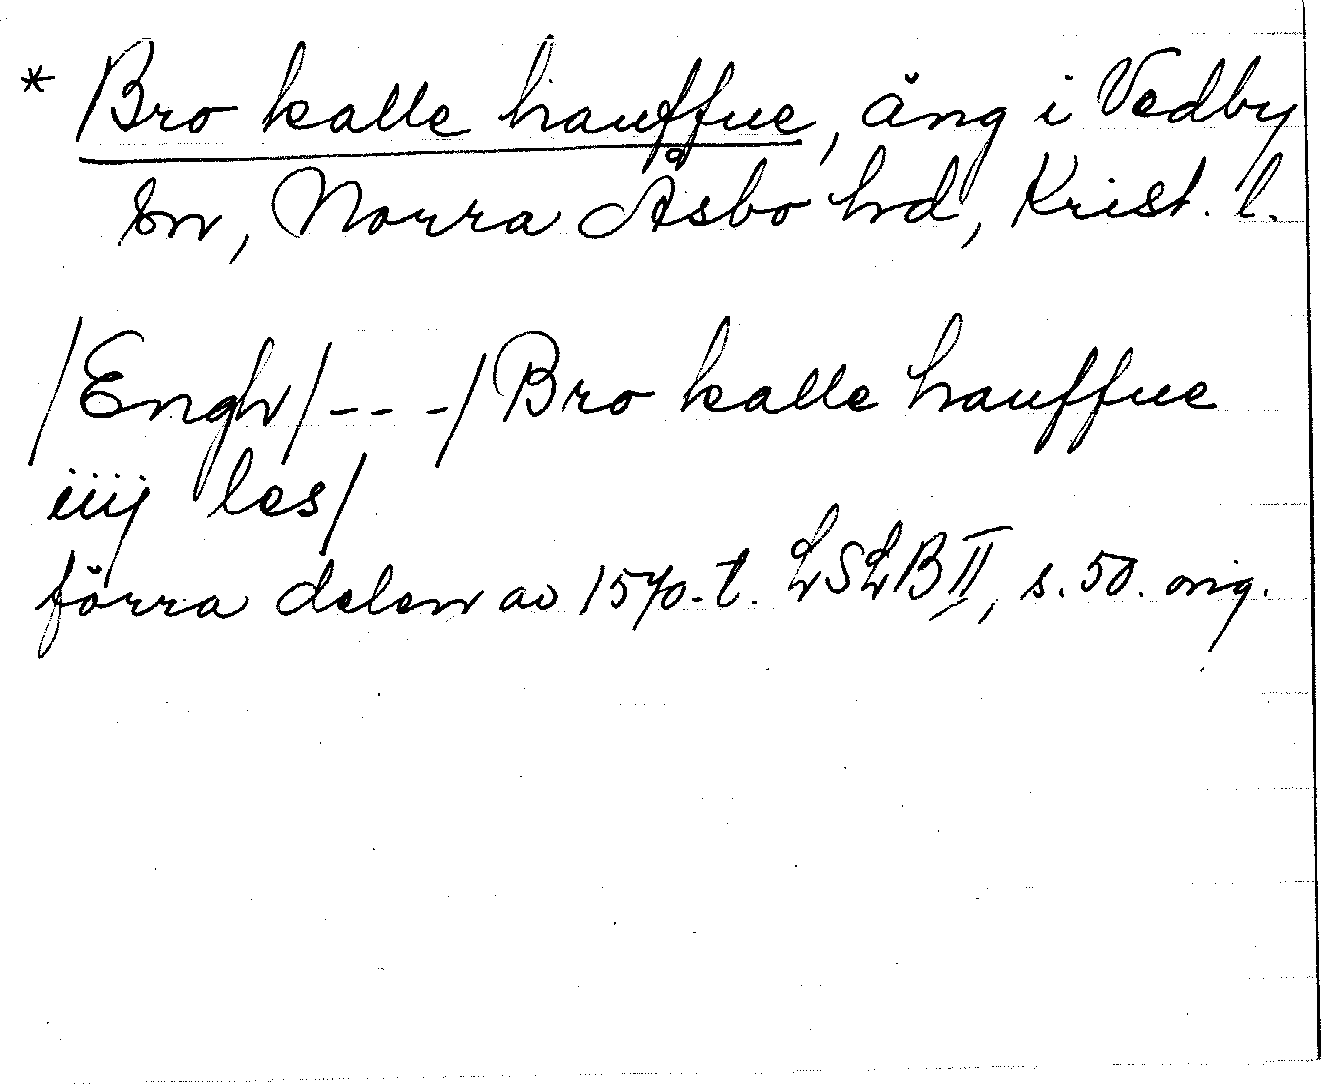 * Bro kalle hauffue, äng i Vedby
sn, Norra Åsbo hd, Krist. l.
/Engh/ - - - / Bro kalle hauffue
iiij les/
förra delen av 1570-t. LSLB II, s. 50. orig.